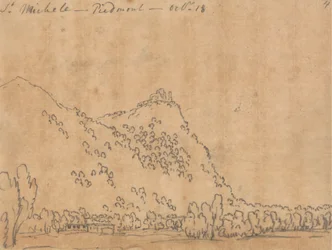 St. Michele — Piedmont — Octr. 18